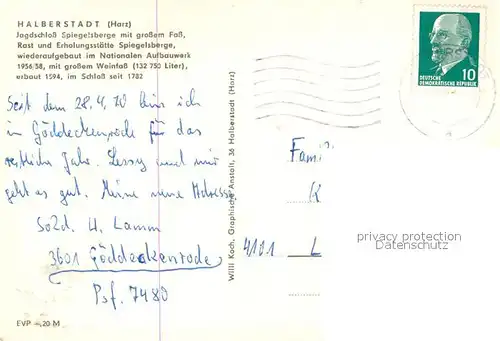 HALBERSTADT (Harz)
Jagdschloß Spiegelsberge mit großem Faß,
Rast und Erholungsstätte Spiegelsberge,
wiederaufgebaut im Nationalen Aufbauwerk
1956/58, mit großem Weinfaß (132 750 Liter),
erbaut 1594, im Schloß seit 1782
Seit dem 28.4.70 bin ich
in Göddeckenrode für das
restliche Jahr. Lessy und mir
geht es gut. Meine neue Adresse
Sold. H. Lamm
3601 Göddeckenrode
Psf. 7480
EVP -,20 M
Willi Koch, Graphische Anstalt, 36 Halberstadt (Harz)
10
DEUTSCHE
DEMOKRATISCHE REPUBLIK
Fami
K
4101 L
privacy protection
Datenschutz